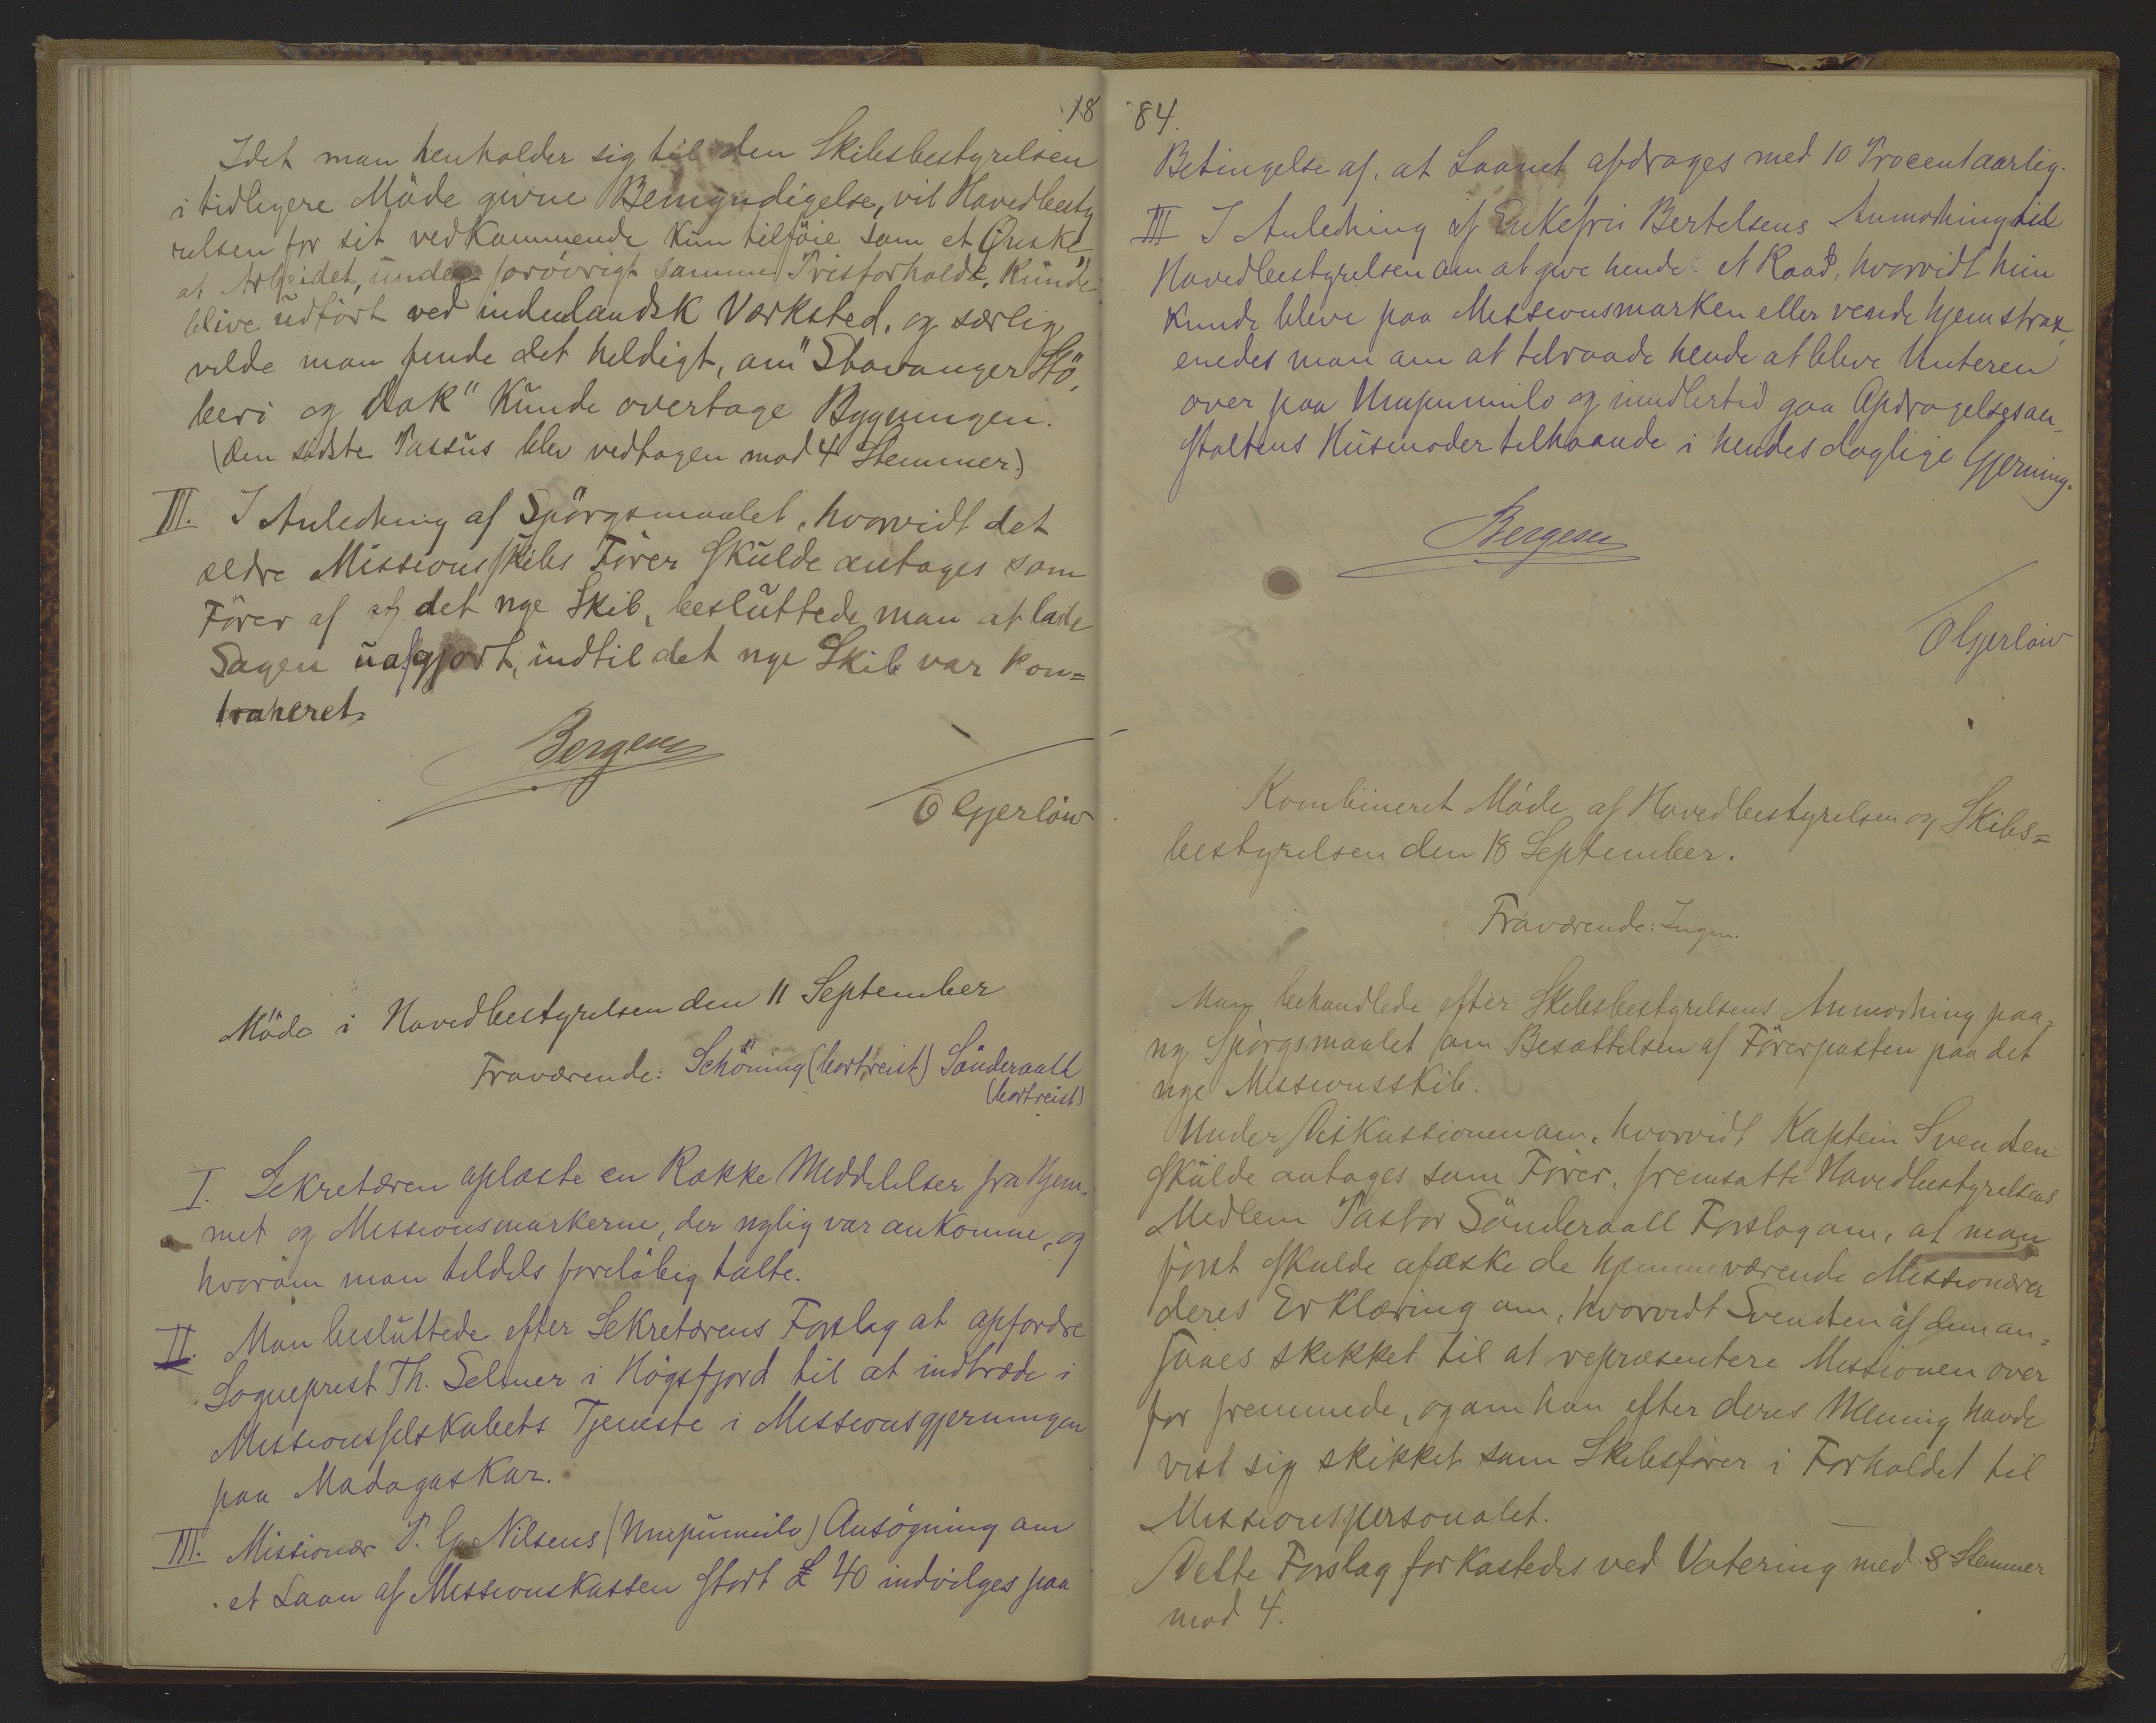 18
Idet man henholder sig til den Skibsbestyrelsen
i tidligere Møde givne Bemyndigelse, vil Hovedbesty
relsen for sit vedkommende kun tilföie som et Ønske,
at Arbeidet, under forövrigt samme Prisforholde, kunde
blive udfört ved indenlandsk Værksted, og særlig
vilde man finde det heldigt, om "Stavanger Stö,
beri og Dok" kunde overtage Bygningen.
(Den sidste Passus blev vedtagen mod 4 Stemmer.)
III. I Anledning af Spörgsmaalet, hvorvidt det
ældre Missionsskibs Förer skulde antages som
Förer af af det nye Skib, besluttede man at lade
Sagen uafgjort, indtil det nye Skib var kon=
traheret.
Bergesen
O Gjerlöw
Möde i Hovedbestyrelsen den 11 September
Fraværende: Schöning (bortreist) Sönderaall
(bortreist)
I. Sekretæren oplæste en Række Meddelelser fra Hjem-
met og Missionsmarkerne, der nylig var ankomne, og
hvorom man tildels forelöbig talte.
II. Man besluttede efter Sekretærens Forslag at opfordre
Sogneprest Th. Selmer i Högsfjord til at indtræde i
Missionsselskabets Tjeneste i Missionsgjerningen
paa Madagaskar.
III. Missionær P. G. Nilsens (Umpumulo) Ansögning om
et Laan af Missionskassen stort £ 40 indvilges paa
84.
Betingelse af, at Laanet afdrages med 10 Procent aarlig.
III I Anledning af Enkefru Bertelsens Anmodning til
Hovedbestyrelsen om at give hende et Raad, hvorvidt hun
kunde blive paa Missionsmarken eller vende hjem strax,
enedes man om at tilraade hende at blive Vinteren
over paa Umpumulo og imidlertid gaa Opdragelsesan-
staltens Husmoder tilhaande i hendes daglige Gjerning.
Bergesen
O Gjerlöw
Kombineret Möde af Hovedbestyrelsen og Skibs=
bestyrelsen den 18 September.
Fraværende: Ingen.
Man behandlede efter Skibsbestyrelsens Anmodning paa-
ny Spörgsmaalet om Besættelsen af Förerposten paa det
nye Missionsskib.
Under Diskussionen om, hvorvidt Kaptein Svendsen
skulde antages som Förer, fremsatte Hovedbestyrelsens
Medlem Pastor Sönderaall Forslag om, at man
först skulde afæske de hjemmeværende Missionærer
deres Erklæring om, hvorvidt Svendsen af dem an-
saaes skikket til at repræsentere Missionen over
for fremmede, og om han efter deres Mening havde
vist sig skikket som Skibsförer i Forholdet til
Missionspersonalet.
Dette Forslag forkastedes ved Votering med 8 Stemmer
mod 4.